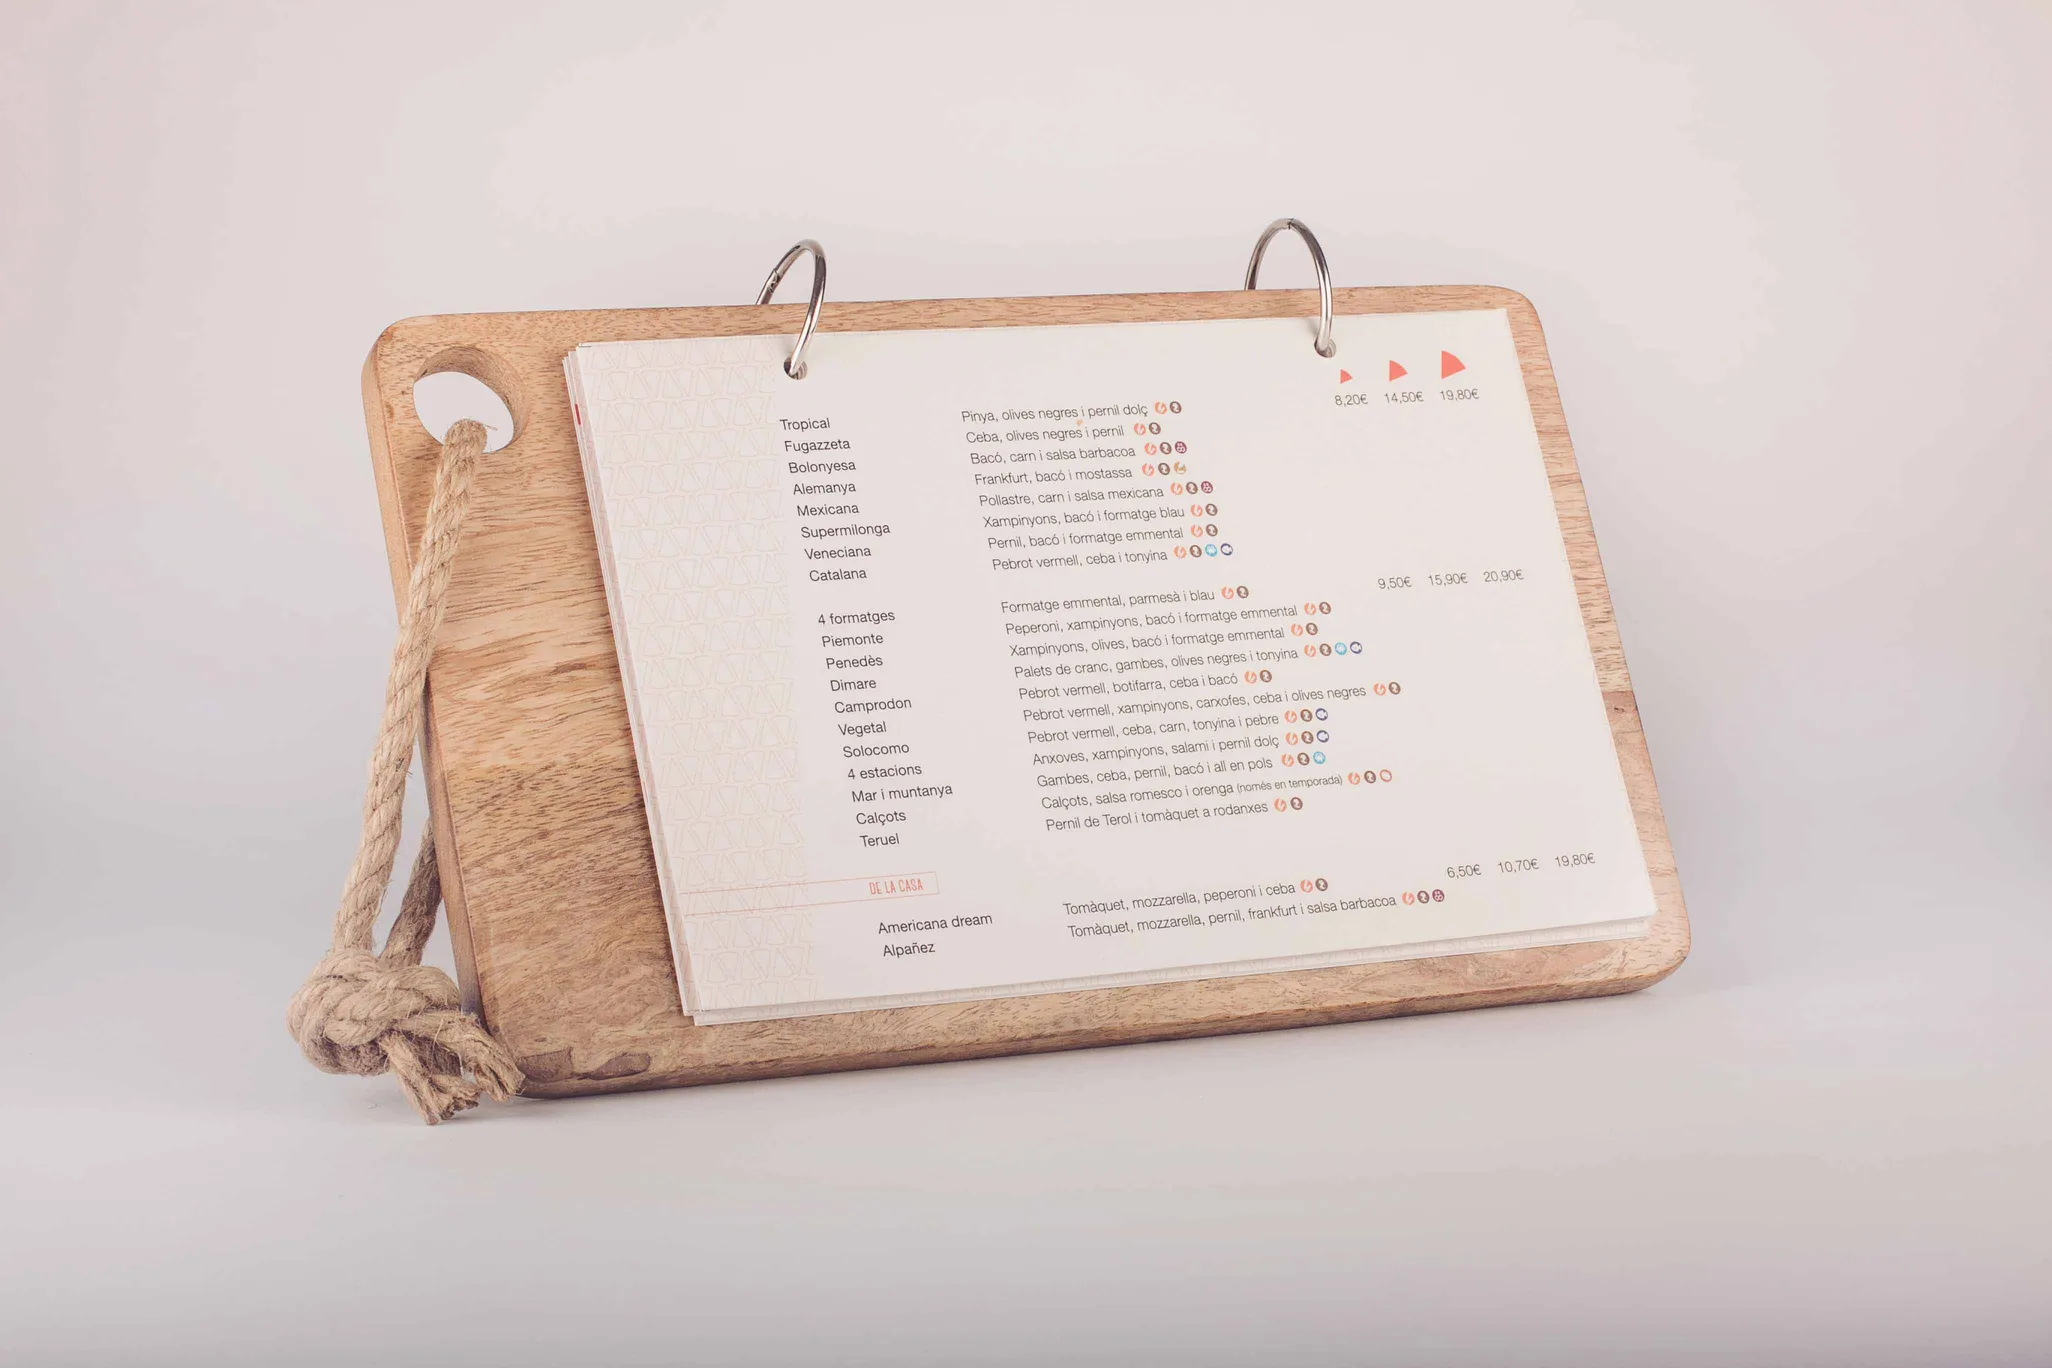 8,20€ 14,50€ 19,80€
Tropical Pinya, olives negres i pernil dolç
Fugazzeta Ceba, olives negres i pernil
Bolonyesa Bacó, carn i salsa barbacoa
Alemanya Frankfurt, bacó i mostassa
Mexicana Pollastre, carn i salsa mexicana
Supermilonga Xampinyons, bacó i formatge blau
Veneciana Pernil, bacó i formatge emmental
Catalana Pebrot vermell, ceba i tonyina
9,50€ 15,90€ 20,90€
4 formatges Formatge emmental, parmesà i blau
Piemonte Peperoni, xampinyons, bacó i formatge emmental
Penedès Xampinyons, olives, bacó i formatge emmental
Dimare Palets de cranc, gambes, olives negres i tonyina
Camprodon Pebrot vermell, botifarra, ceba i bacó
Vegetal Pebrot vermell, xampinyons, carxofes, ceba i olives negres
Solocomo Pebrot vermell, ceba, carn, tonyina i pebre
4 estacions Anxoves, xampinyons, salami i pernil dolç
Mar i muntanya Gambes, ceba, pernil, bacó i all en pols
Calçots Calçots, salsa romesco i orenga (només en temporada)
Teruel Pernil de Terol i tomàquet a rodanxes
DE LA CASA
6,50€ 10,70€ 19,80€
Americana dream Tomàquet, mozzarella, peperoni i ceba
Alpañez Tomàquet, mozzarella, pernil, frankfurt i salsa barbacoa